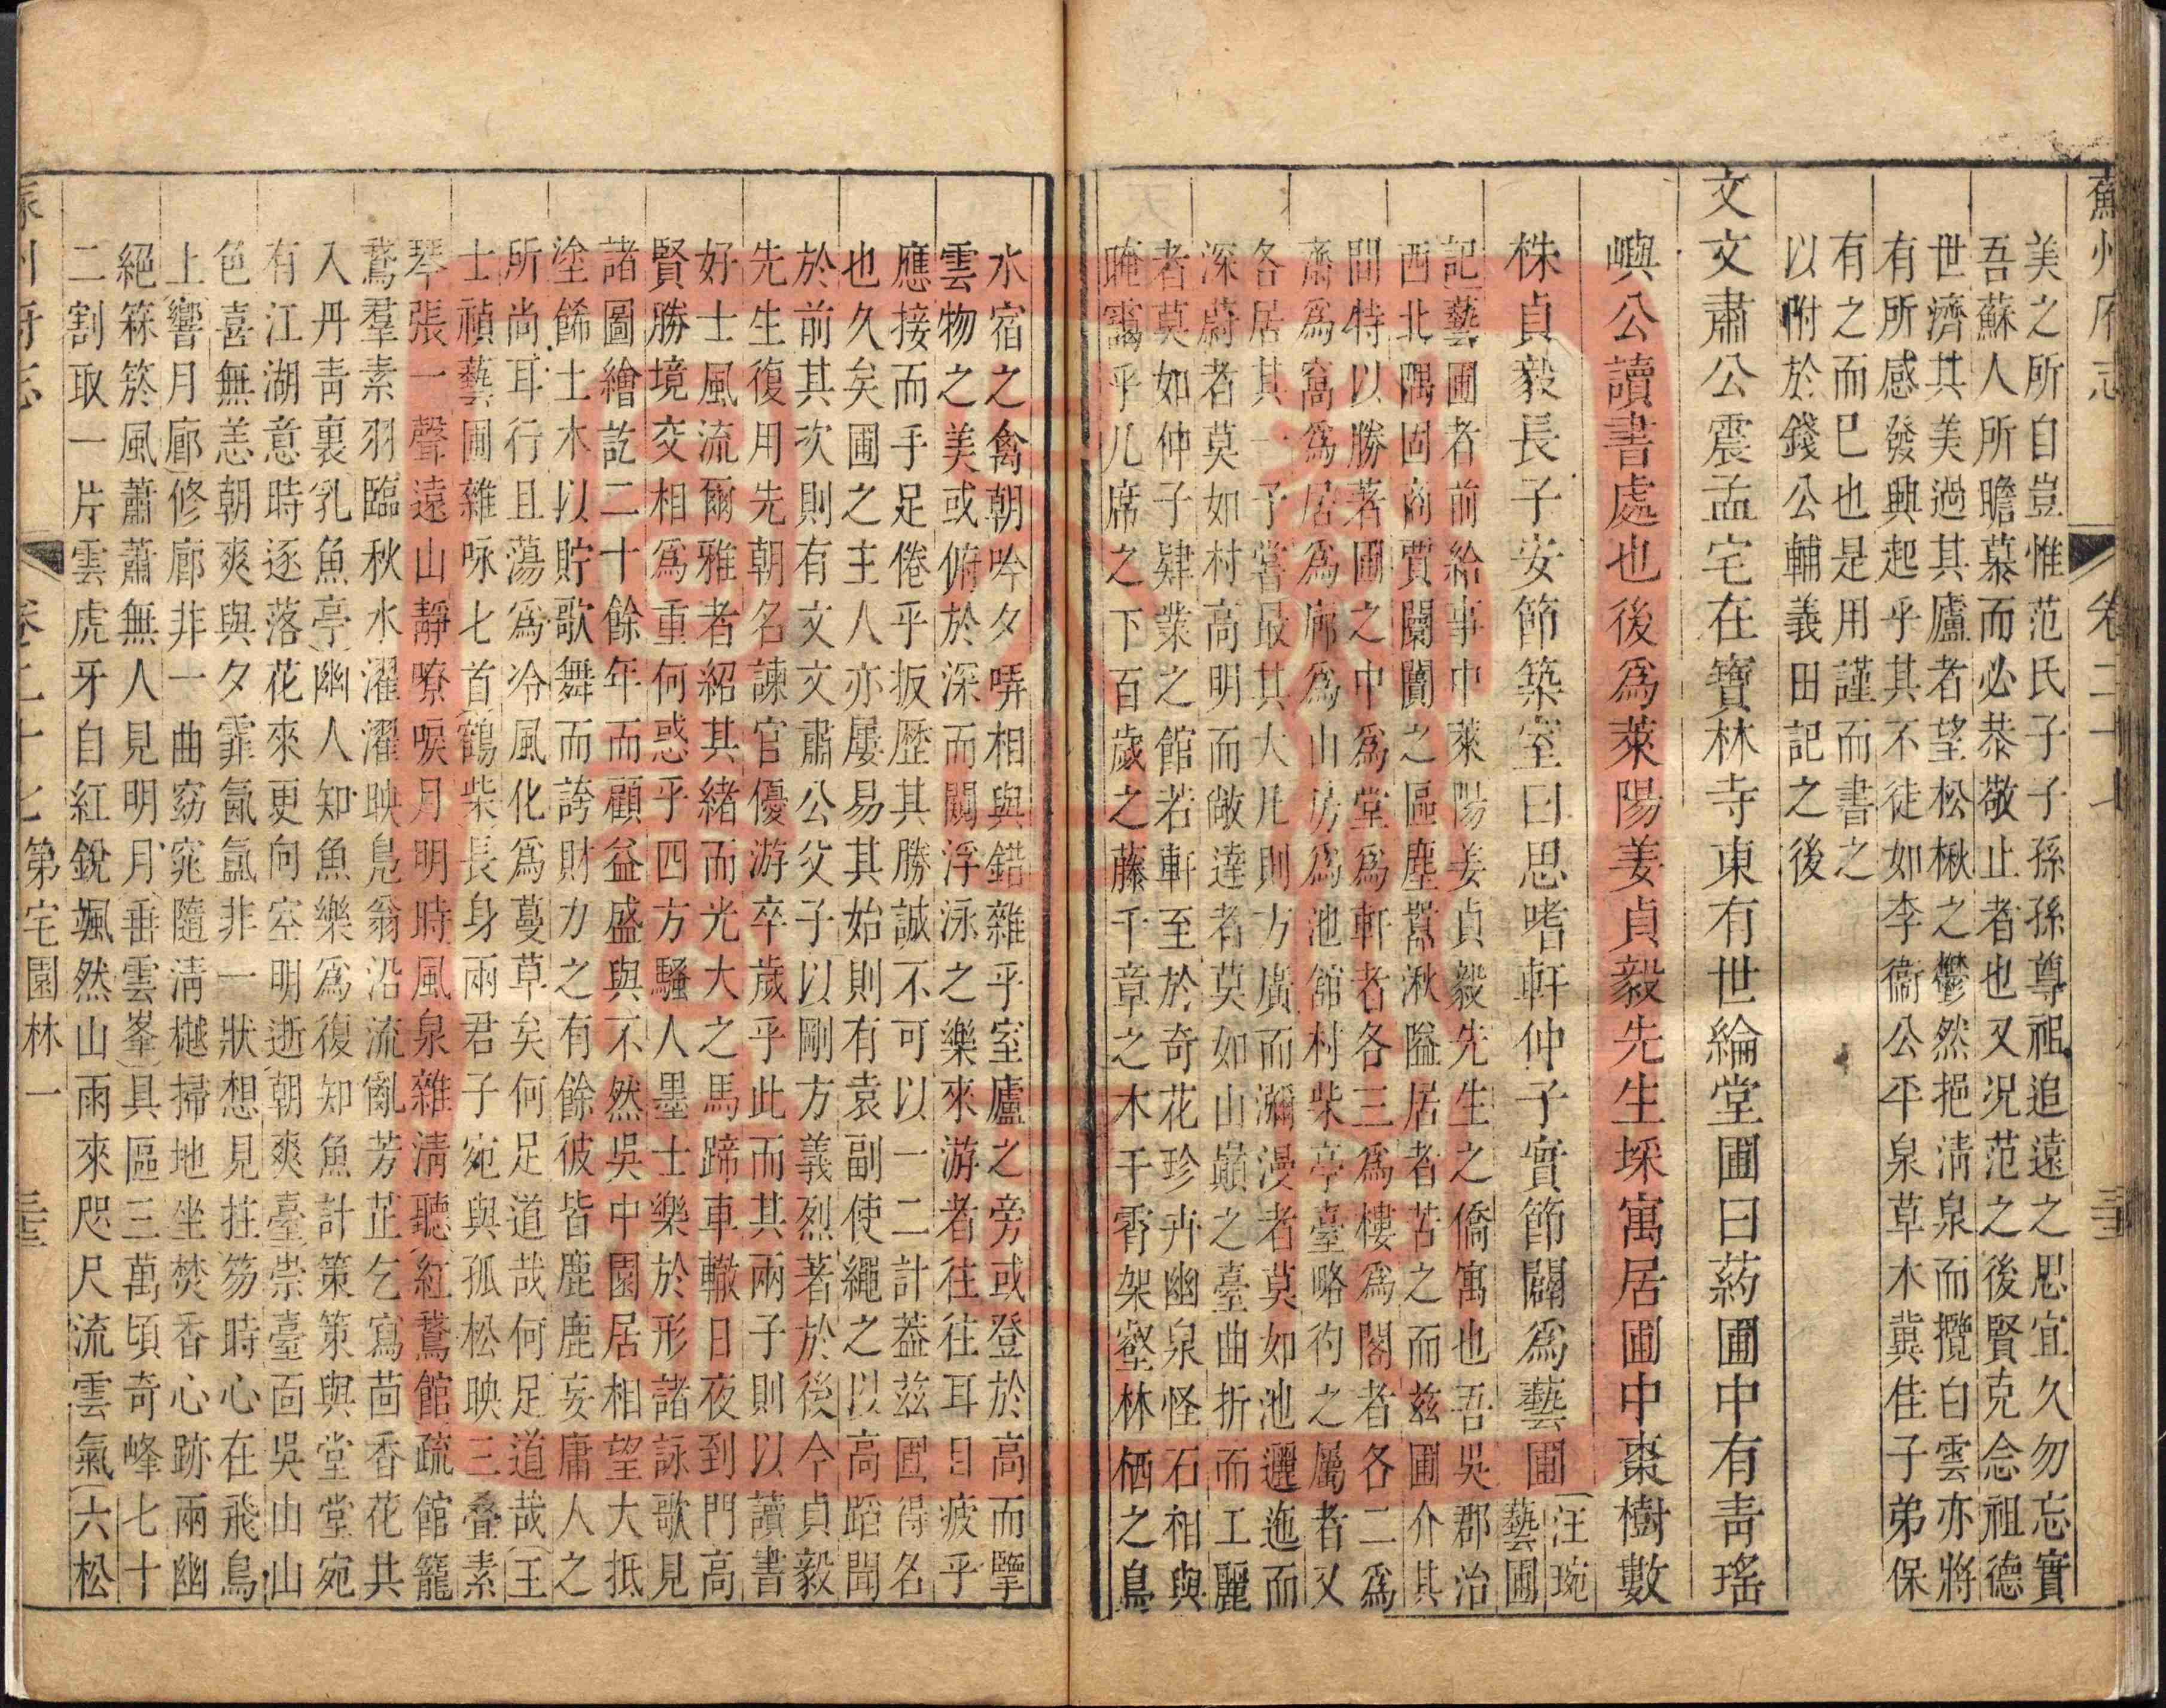 蘇州府志 卷二十七
美之所自豈惟范氏子子孫孫尊祖追遠之思宜久勿忘實
吾蘇人所瞻慕而必恭敬止者也又况范之後賢克念祖德
世濟其美過其廬者望松楸之鬱然挹淸泉而攬白雲亦將
有所感發興起乎其不徒如李衞公平泉草木冀佳子弟保
有之而已也是用謹而書之
以附於錢公輔義田記之後
文文肅公震孟宅在寶林寺東有世綸堂圃曰葯圃中有靑瑤
嶼公讀書處也後爲萊陽姜貞毅先生埰寓居圃中棗樹數
株貞毅長子安節築室曰思嗜軒仲子實節闢爲藝圃
汪琬
藝圃
記藝圃者前給事中萊陽姜貞毅先生之僑寓也吾吳郡治
西北隅固商賈闤闠之區塵囂湫隘居者苦之而茲圃介其
間特以勝著圃之中爲堂爲軒者各三爲樓爲閣者各二爲
齋爲窩爲居爲廊爲山房爲池館村柴亭臺略彴之屬者又
各居其一予嘗最其大凡則方廣而瀰漫者莫如池邐迤而
深蔚者莫如村高明而敞達者莫如山巔之臺曲折而工麗
者莫如仲子肄業之館若軒至於奇花珍卉幽泉怪石相與
晻靄乎几席之下百歲之藤千章之木干霄架壑林栖之鳥
水宿之禽朝吟夕哢相與錯雜乎室廬之旁或登於高而擥
雲物之美或俯於深而闚浮泳之樂來游者往往耳目疲乎
應接而手足倦乎扳歷其勝誠不可以一二計葢茲圃得名
也久矣圃之主人亦屢易其始則有袁副使繩之以高蹈聞
於前其次則有文文肅公父子以剛方義烈著於後今貞毅
先生復用先朝名諫官優游卒歲乎此而其兩子則以讀書
好士風流爾雅者紹其緒而光大之馬蹄車轍日夜到門高
賢勝境交相爲重何惑乎四方騷人墨士樂於形諸詠歌見
諸圖繪訖二十餘年而顧益盛與不然吳中園居相望大抵
塗餙土木以貯歌舞而誇財力之有餘彼皆鹿鹿妄庸人之
所尚耳行且蕩爲冷風化爲蔓草矣何足道哉何足道哉王
士禎藝圃雜咏七首鶴柴長身兩君子宛與孤松映三叠素
琴張一聲遠山靜嘹唳月明時風泉雜淸聽紅鵞館疏館籠
鵞羣素羽臨秋水濯濯映鳧翁沿流亂芳芷乞寫茴香花其
入丹靑裏乳魚亭幽人知魚樂爲復知魚計策策與堂堂宛
有江湖意時逐落花來更向空明逝朝爽臺崇臺面吳山山
色喜無恙朝爽與夕霏氤氳非一狀想見拄笏時心在飛鳥
上響月廊修廊非一曲窈窕隨淸樾掃地坐焚香心跡兩幽
絕箖箊風蕭蕭無人見明月垂雲峯具區三萬頃奇峰七十
二割取一片雲虎牙自紅銳颯然山雨來咫尺流雲氣六松
卷二十七 第宅園林一